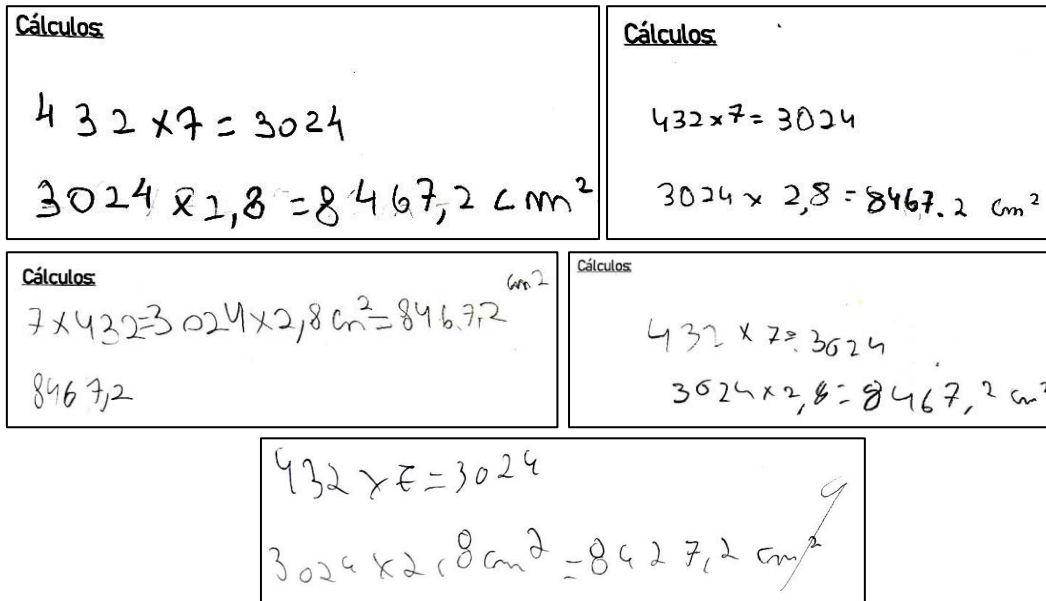 Cálculos:
432 x 7 = 3024
3024 x 2,8 = 8467,2 cm²
Cálculos:
432 x 7 = 3024
3024 x 2,8 = 8467.2 cm²
Cálculos:
7 x 432 = 3024 x 2,8 cm² = 8467,2 cm²
8467,2
Cálculos:
432 x 7 = 3024
3024 x 2,8 = 8467,2 cm²
432 x 7 = 3024
3024 x 2,8 cm² = 8427,2 cm²